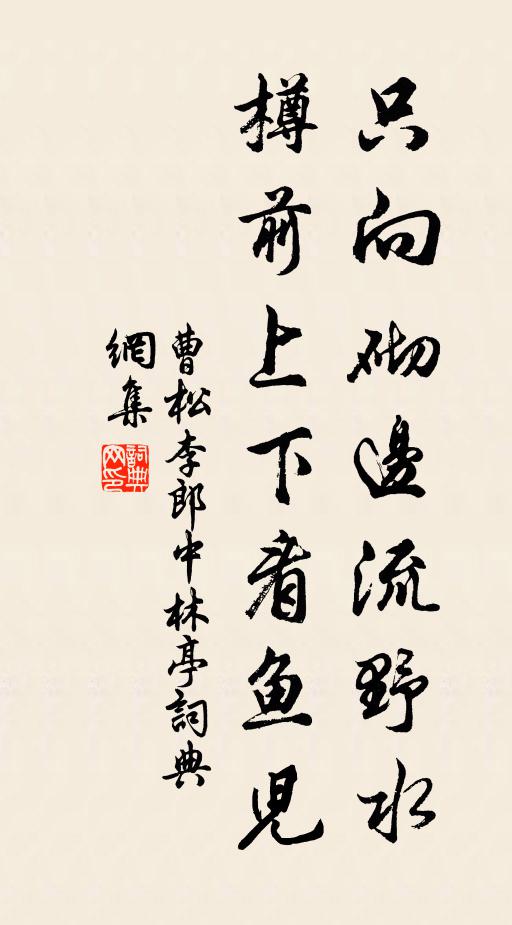 只向砌邊流野水
樽前上下看魚兒
曹松李郎中林亭詞典
網集
詞典
网印